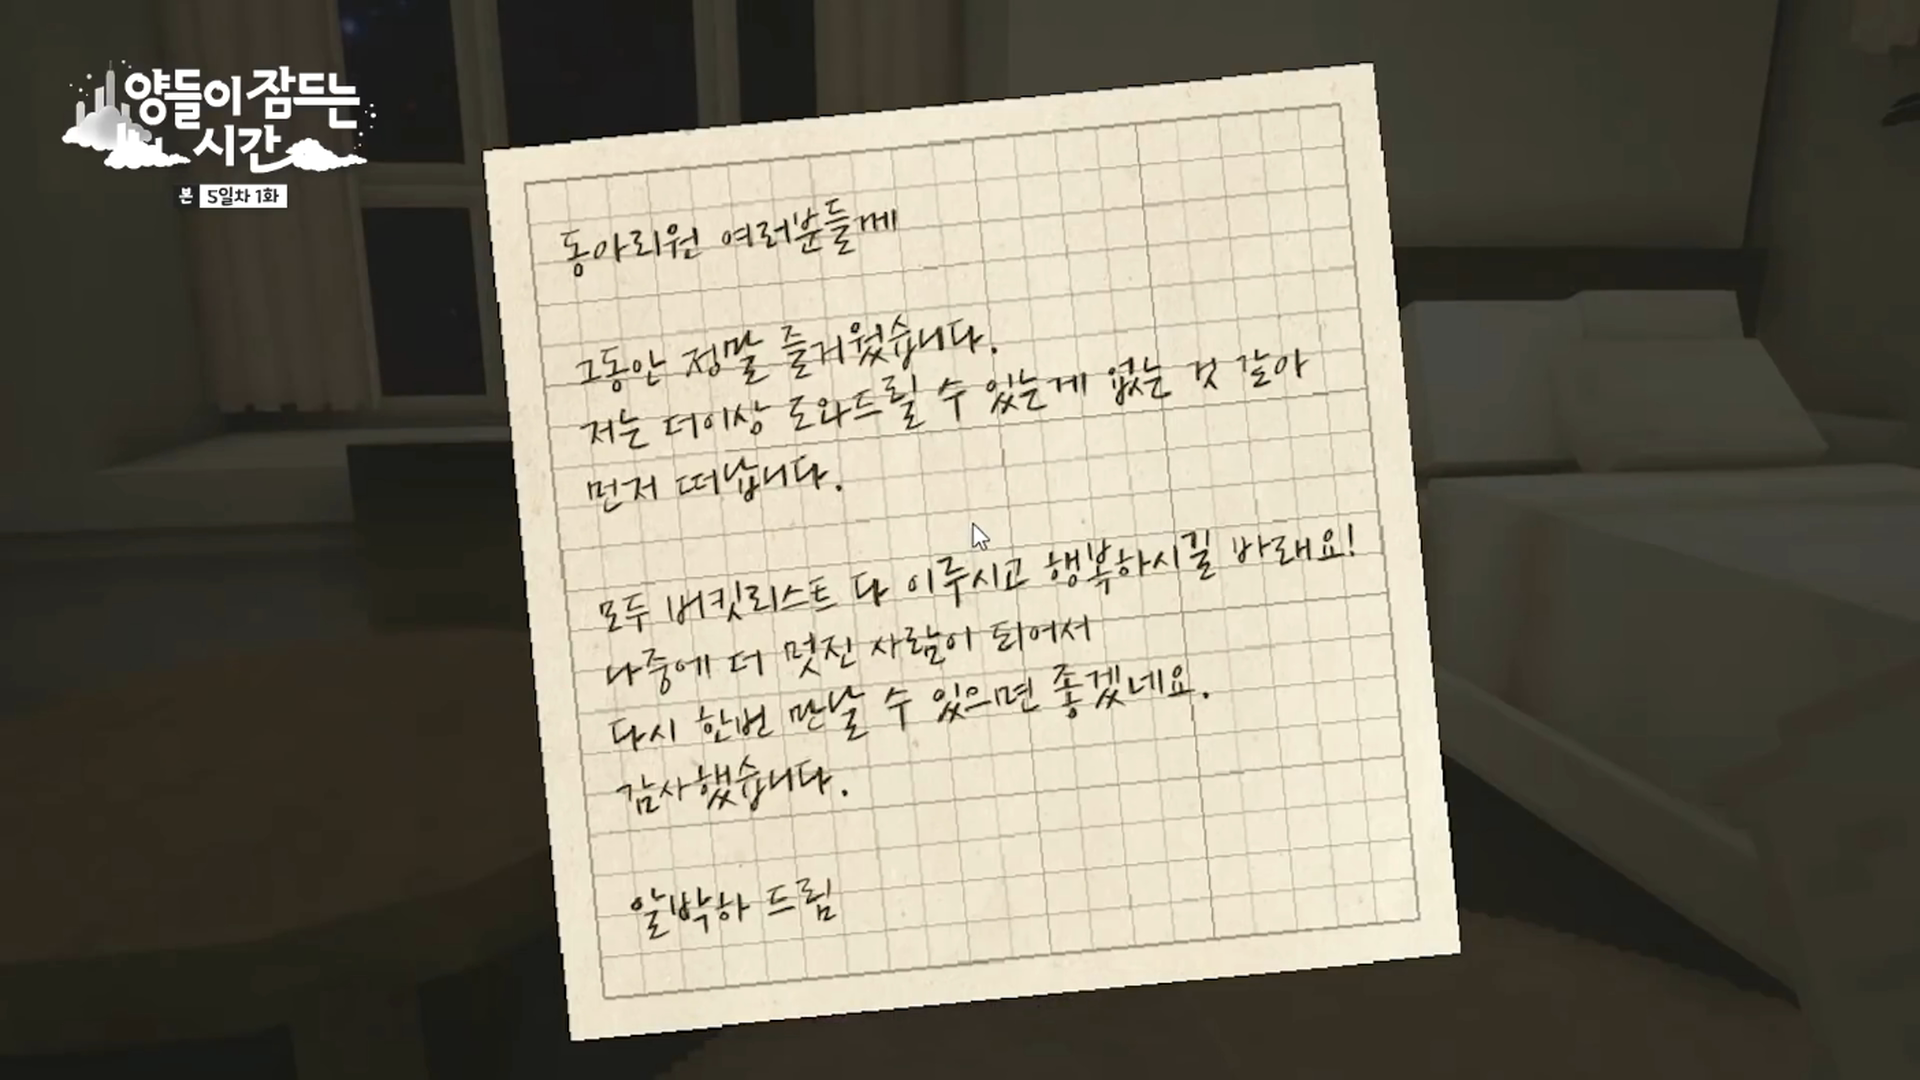 양들이 잠드는
시간
본 5일차 1화
동아리원 여러분들께
그동안 정말 즐거웠습니다.
저는 더이상 도와드릴 수 있는게 없는 것 같아
먼저 떠납니다.
모두 버킷리스트 다 이루시고 행복하시길 바래요!
나중에 더 멋진 사람이 되어서
다시 한번 만날 수 있으면 좋겠네요.
감사했습니다.
알박하 드림